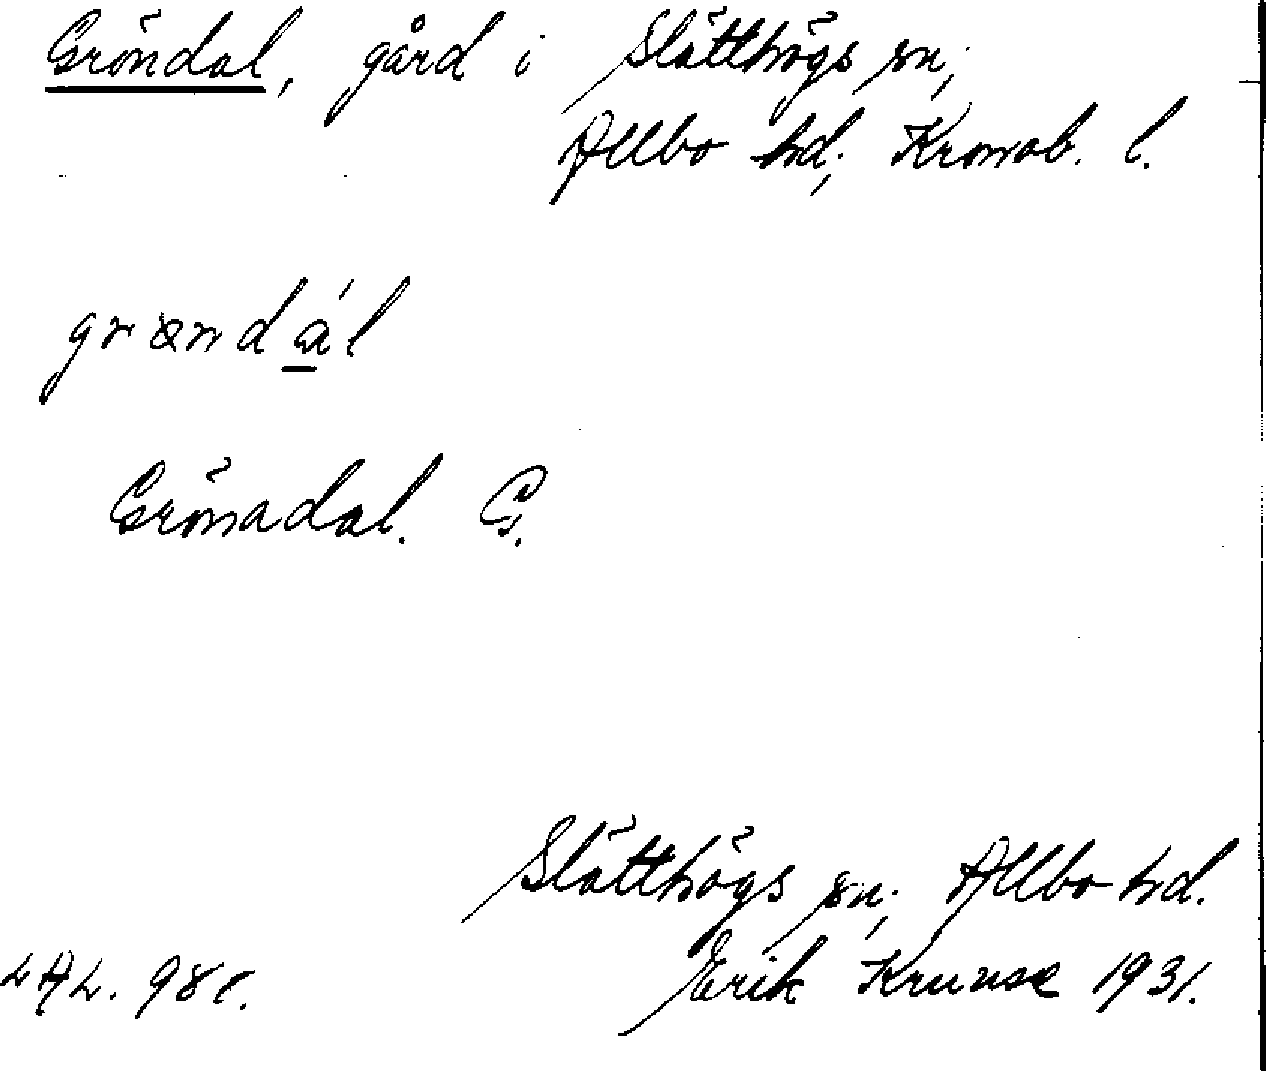 Gröndal, gård i Slätthögs sn,
Allbo hd, Kronob. l.
grœndál
Grönadal. G.
Slätthögs sn, Allbo hd.
Erik Kruuse 1931.